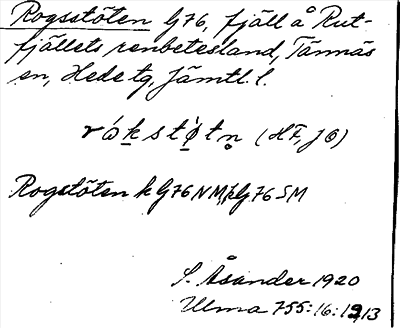 Rogsstöten G76, fjäll å Rut-
fjällets renbetesland, Tännäs
sn, Hede tg, Jämtl. l.
(HF, JÖ)
Rogstöten k G76NM, k G76SM
S. Åsander 1920
Ulma 755:16:12,13